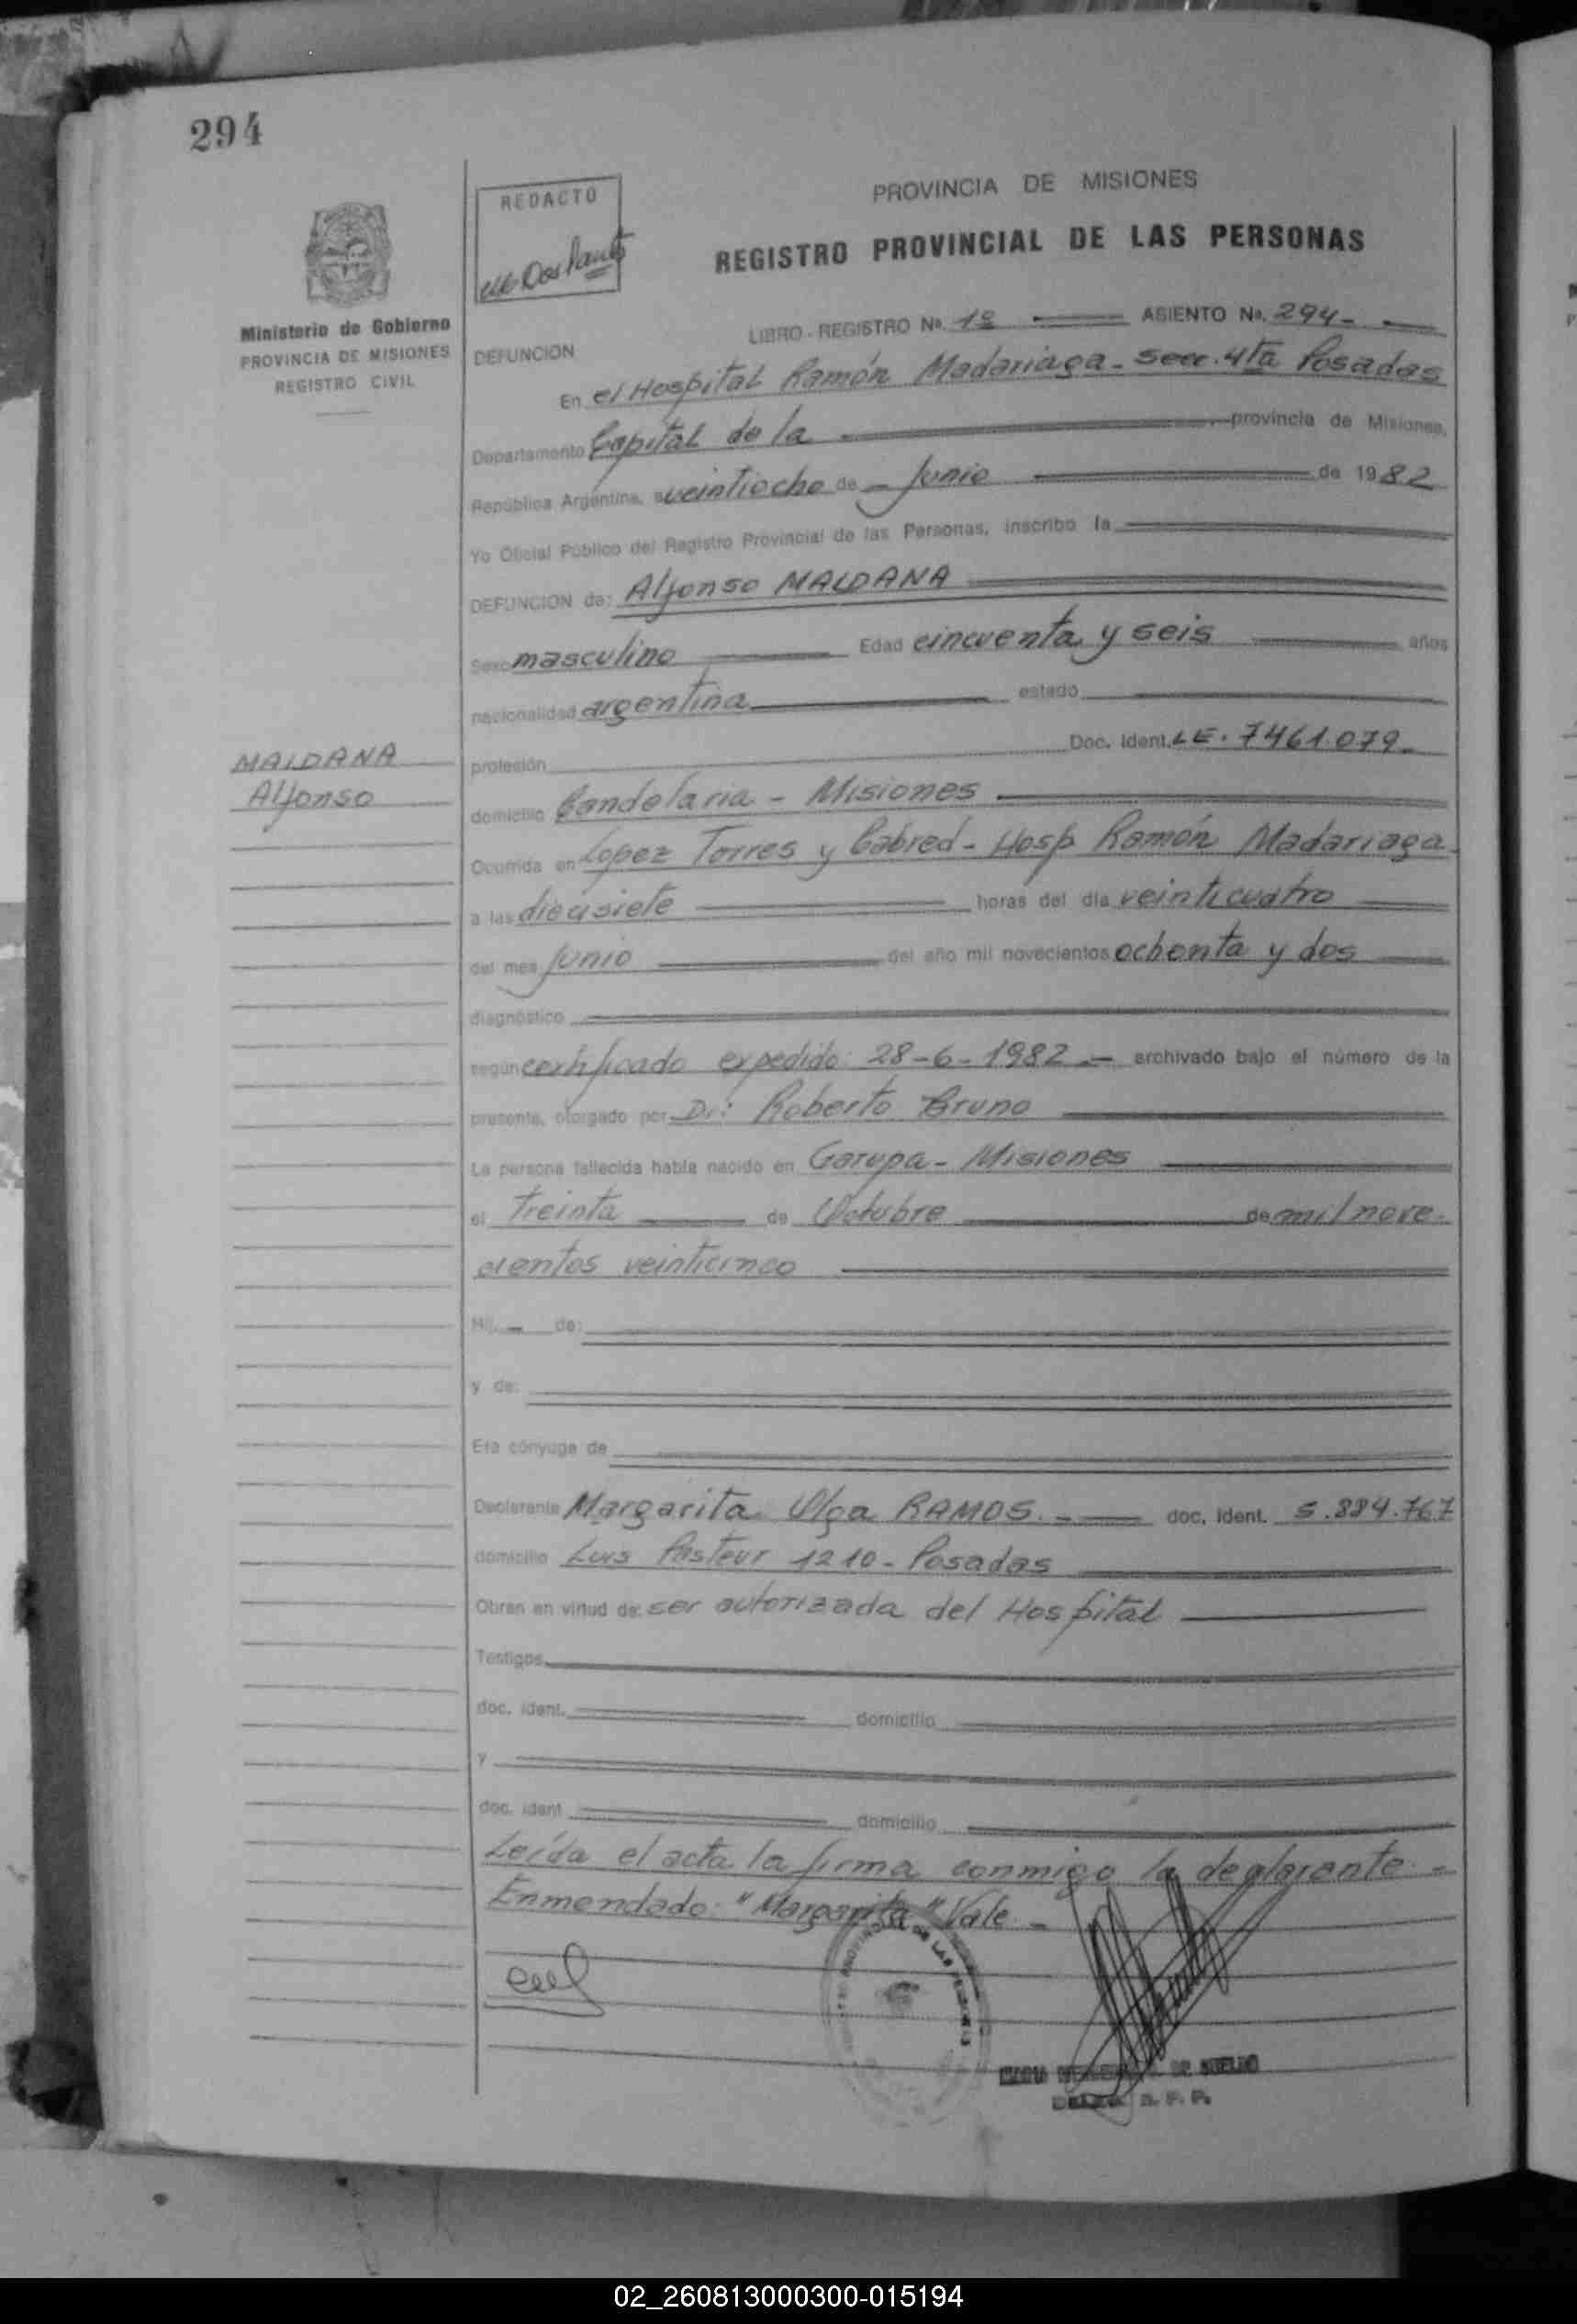 294
REDACTO
PROVINCIA DE MISIONES
REGISTRO PROVINCIAL DE LAS PERSONAS
Ministerio de Gobierno
PROVINCIA DE MISIONES
REGISTRO CIVIL
LIBRO - REGISTRO No. 1º ASIENTO No. 294-
DEFUNCION
En el Hospital Ramón Madariaga - Secc. 4ta Posadas
Departamento Capital de la provincia de Misiones,
República Argentina, a veintiocho de - Junio de 1982
Yo Oficial Público del Registro Provincial de las Personas, inscribo la
DEFUNCION de: Alfonso MALDANA
Sexo masculino Edad cincuenta y seis años
nacionalidad argentina estado
MALDANA
Alfonso
profesión Doc. Ident. LE. 7461.079-
domicilio Candelaria - Misiones
Ocurrida en Lopez Torres y Cabred - Hosp Ramón Madariaga.
a las diecisiete horas del día veinticuatro
del mes Junio del año mil novecientos ochenta y dos
diagnóstico
según certificado expedido: 28-6-1982.- archivado bajo el número de la
presente, otorgado por Dr: Roberto Bruno
La persona fallecida había nacido en Garupa - Misiones
el Treinta de Octubre de mil nove-
cientos veinticinco
Hij. - de:
y de:
Era cónyuge de
Declarante Margarita Olga RAMOS. - doc. Ident. 5.884.767
domicilio Luis Pasteur 1210 - Posadas
Obran en virtud de: ser autorizada del Hospital
Testigos
doc. ident. domicilio
y
doc. ident domicilio
Leída el acta la firma conmigo la declarante. -
Enmendado: "Margarita" Vale. -
PROVINCIAL DE LAS PERSONAS
02_260813000300-015194